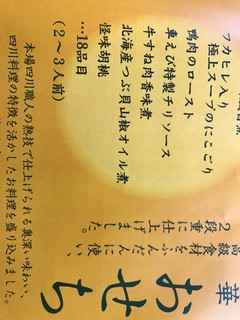 華
おせち
高級食材をふんだんに使い、
2段重に仕上げました。
フカヒレ入り
極上スープのにこごり
鴨肉のロースト
車えび特製チリソース
牛すね肉香味煮
北海産つぶ貝山椒オイル煮
怪味胡桃
…18品目
(2〜3人前)
本場四川職人の熟技で仕上げられる奥深い味わい、
四川料理の特徴を活かしたお料理を盛り込みました。